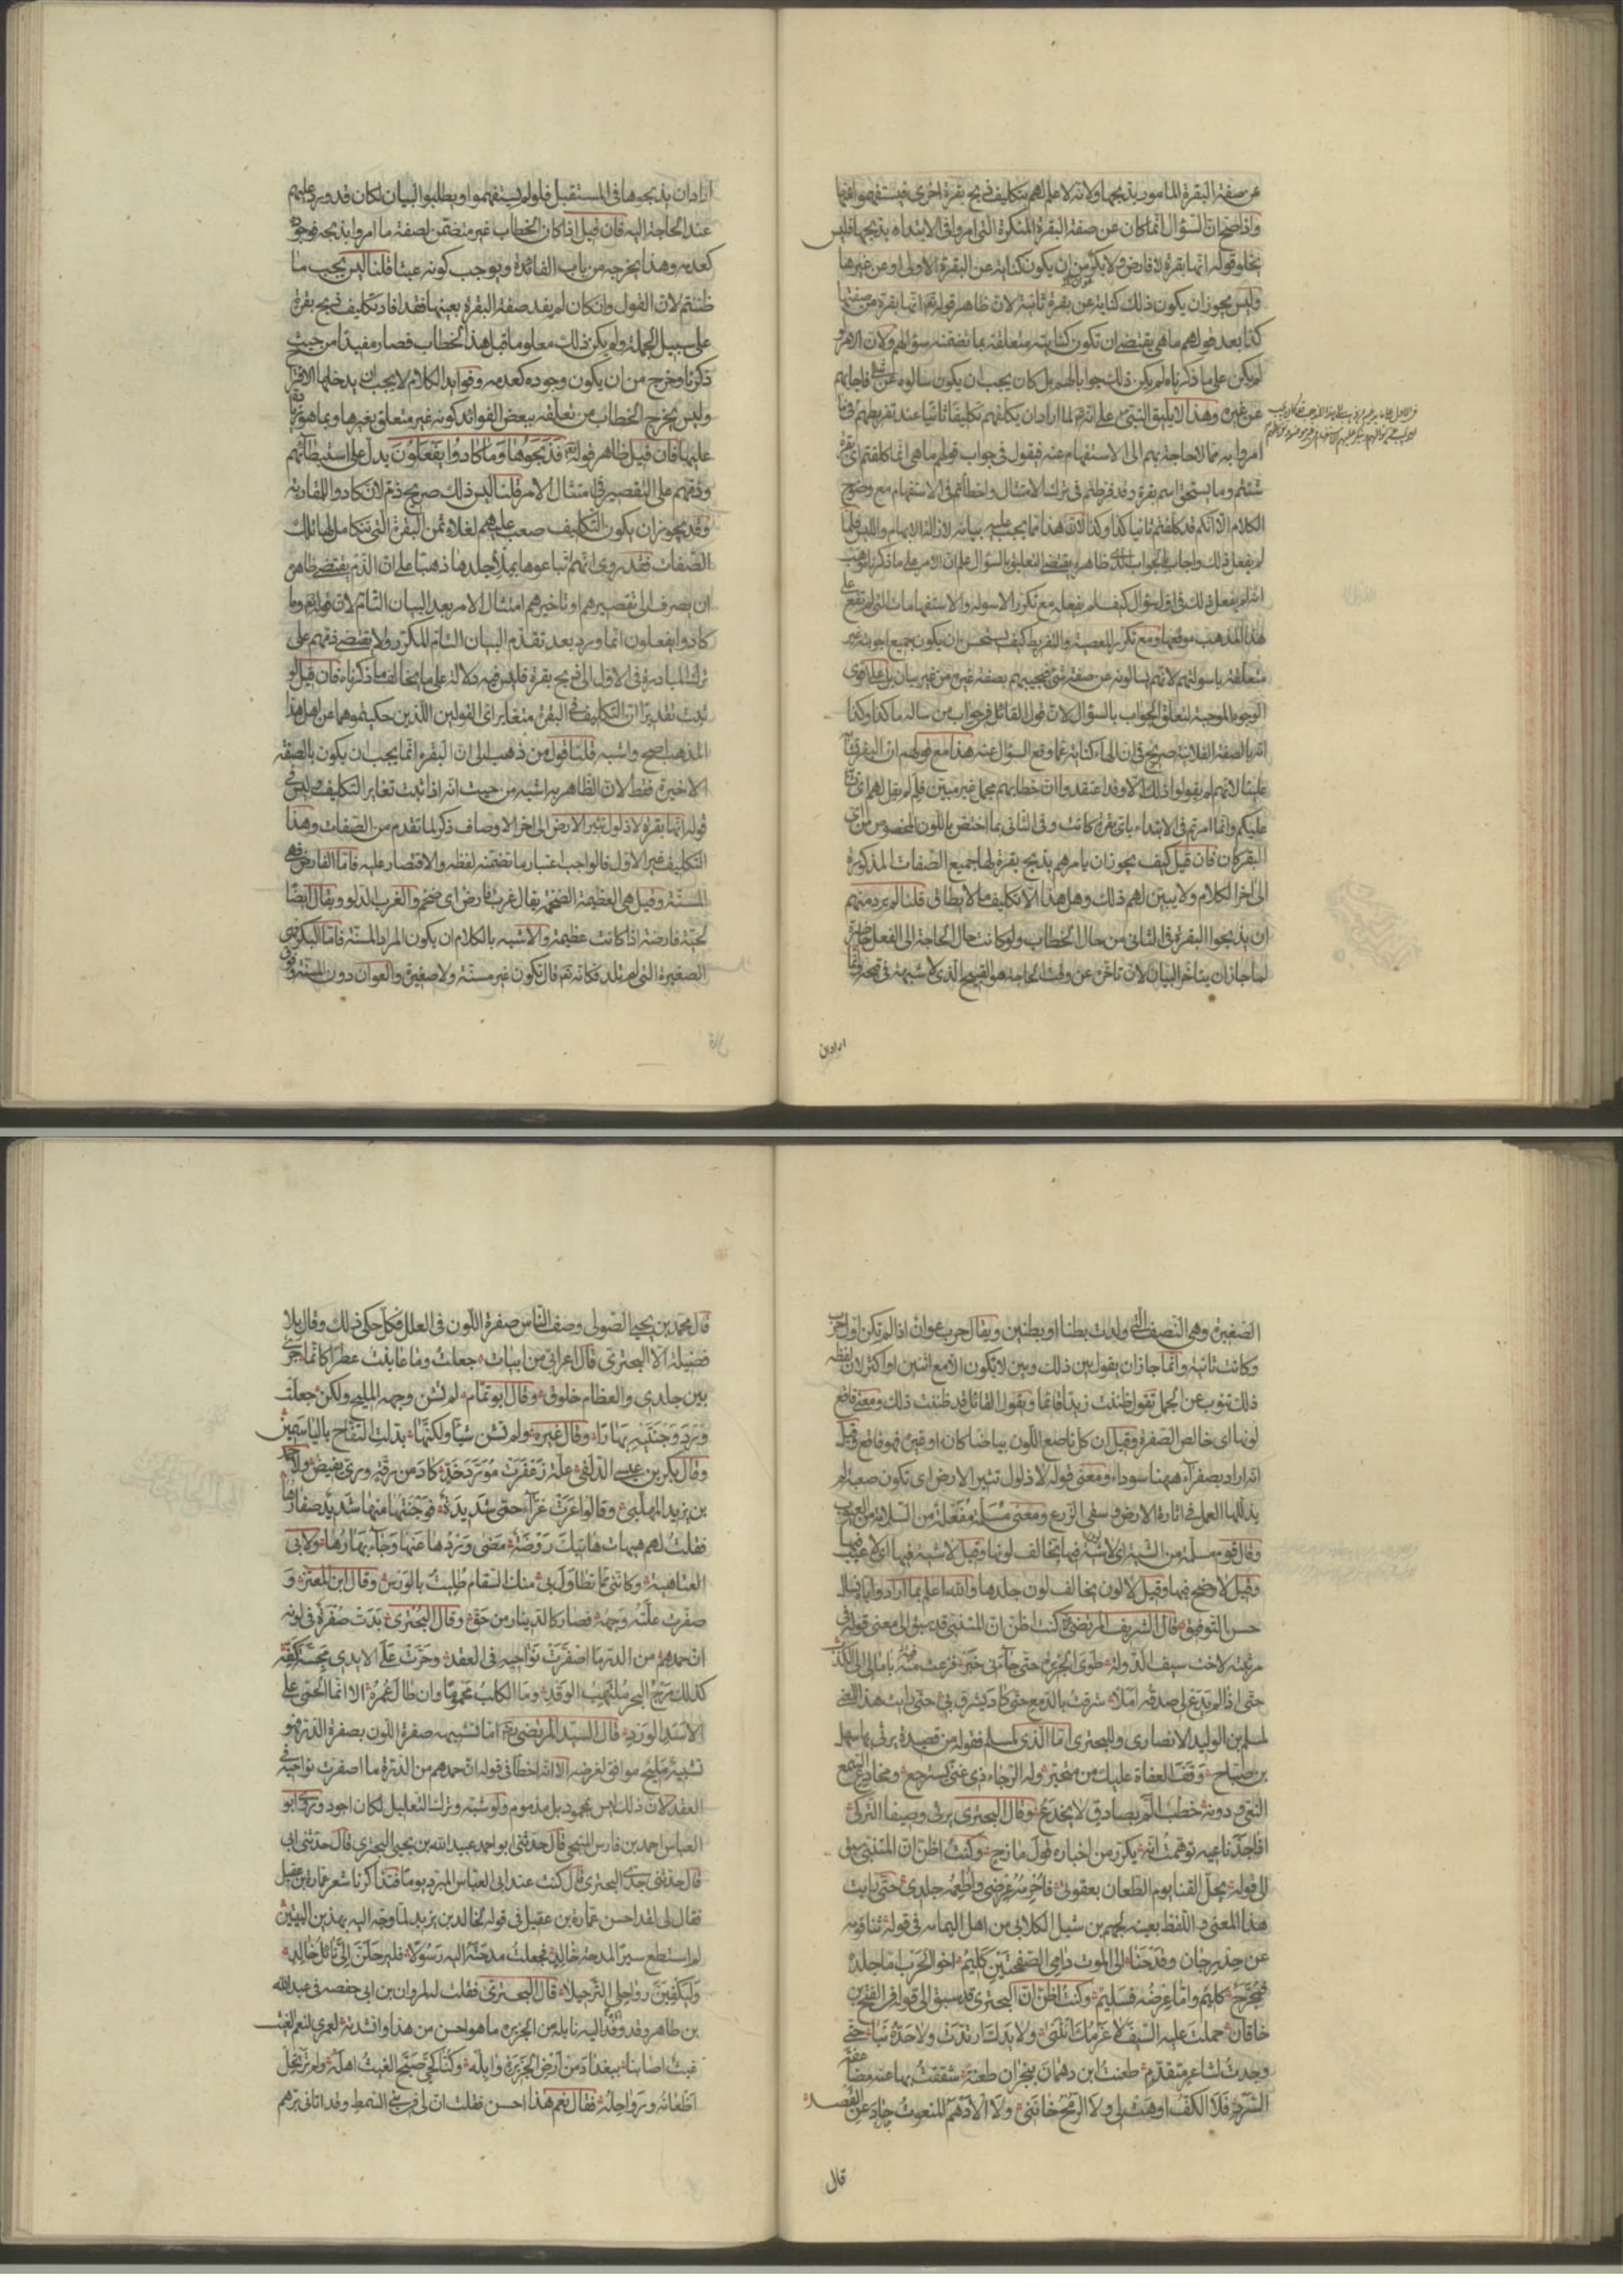 عن صفة البقرة المامور بذبحها ولانه لا علم لهم بتكليف ذبح بقرة اخرى فيستفهموا عنها
واذا صح ان السؤال انما كان عن صفة البقرة المنكرة التي امروا في الابتداء بذبحها فليس
يخلو قوله انها بقرة لا فارض ولا بكر من ان يكون كناية عن البقرة الاولى او عن غيرها
وليس يجوز ان يكون ذلك كناية عن بقرة ثانية لان ظاهر قوله تع انها بقرة من صفتها
كذا بعد قولهم ما هي يقتضي ان تكون كناية متعلقة بما تضمنه سؤالهم ولان الامر لو
لم يكن على ما ذكرناه لم يكن ذلك جوابا لهم بل كان يجب ان يكون سالوه عن شئ فاجابهم
عن غيره وهذا لا يليق بالنبي على انه لما اراد ان يكلفهم تكليفا ثانيا عند تفريطهم فيما
امروا به مما لا حاجة بهم الى الاستفهام عنه فيقول في جواب قولهم ما هي انما كلفتم اي بقرة
شئتم وما يستحق اسم بقرة وقد فرطتم في ترك الامتثال واخطأتم في الاستفهام مع وضوح
الكلام الا انكم قد كلفتم ثانيا كذا وكذا لان هذا مما يجب عليه بيانه لازالة الابهام واللبس فلما
لم يفعل ذلك واجاب بالجواب الذي ظاهره يقتضي التعليق بالسؤال علم ان الامر على ما ذكرناه وهب
انه لم يفعل ذلك في اول سؤال كيف لم يفعله مع تكرر الاسولة والاستفهامات التي لم تقع على
هذا المذهب موقعها ومع تكرر المعصية والتفريط كيف يستحسن ان يكون جميع اجوبته غير
متعلقة باسولتهم لانهم يسالونه عن صفة شئ فيجيبهم بصفة غيره من غير بيان بل على اقوى
الوجوه الموجبة لتعلق الجواب بالسؤال لان قول القائل في جواب من ساله ما كذا وكذا
انه بالصفة الفلانية صريح في ان الهاء كناية عما وقع السؤال عنه هذا مع قولهم ان البقر تشابه
علينا لانهم لم يقولوا ذلك الا وقد اعتقدوا ان خطابهم مجمل غير مبين فلم لم يقل لهم اي تشابه
عليكم وانما امرتم في الابتداء باي بقرة كانت وفي الثاني بما اختص باللون المخصوص من اي
البقر كان فان قيل كيف يجوز ان يامرهم بذبح بقرة لها جميع الصفات المذكورة
الى اخر الكلام ولا يبين لهم ذلك وهل هذا الا تكليف ما لا يطاق قلنا لم يرد منهم
ان يذبحوا البقرة في الثاني من حال الخطاب ولو كانت حال الحاجة الى الفعل حاضرة
لما جاز ان يتاخر البيان لان تاخره عن وقت الحاجة هو القبيح الذي لا شبهة في قبحه وانما
ارادان
اراد ان يذبحوها في المستقبل فلو لم يستفهموا ويطلبوا البيان لكان قد ورد عليهم
عند الحاجة اليه فان قيل اذا كان الخطاب غير متضمن لصفة ما امروا بذبحه فوجوده
كعدمه وهذا يخرجه من باب الفائدة ويوجب كونه عبثا قلنا ليس يجب ما
ظننتم لان القول وان كان لم يفد صفة البقرة بعينها فقد افاد تكليف ذبح بقرة
على سبيل الجملة ولو يكن ذلك معلوما قبل هذا الخطاب فصار مفيدا من حيث
ذكرنا وخرج من ان يكون وجوده كعدمه وفوايد الكلام لا يجب ان يدخلها الاقتراح
وليس يخرج الخطاب من تعلقه ببعض الفوائد كونه غير متعلق بغيرها وبما هو زيادة
عليها فان قيل ظاهر قوله تع فذبحوها وما كادوا يفعلون يدل على استبطائهم
وذمهم على التقصير في امتثال الامر قلنا ليس ذلك صريح ذم لان كادوا للمقاربة
وقد يجوز ان يكون التكليف صعب عليهم لغلاء ثمن البقرة التي تتكامل لها تلك
الصفات فقد روى انهم ابتاعوها بملأ جلدها ذهبا على ان الذم يقتضي ظاهره
ان يصرف الى تقصيرهم او تاخيرهم امتثال الامر بعد البيان التام لان قوله تع وما
كادوا يفعلون انما ورد بعد تقدم البيان التام المتكرر ولا يقتضي ذمهم على
ترك المبادرة في الاول الى ذبح بقرة فليس فيه دلالة على ما يخالف ما ذكرناه فان قيل لو
ثبت تقديرا ان التكليف في البقرة متغاير اي القولين اللذين حكيتموهما عن اهل هذا
المذهب اصح واشبه قلنا قول من ذهب الى ان البقرة انما يجب ان يكون بالصفة
الاخيرة فقط لان الظاهر به اشبه من حيث انه اذا ثبت تغاير التكليف وليس في
قوله انها بقرة لا ذلول تثير الارض الى اخر الاوصاف ذكر لما تقدم من الصفات وهذا
التكليف غير الاول فالواجب اعتبار ما تضمنه لفظه والاقتصار عليه فاما الفارض فهي
المسنة وقيل هي العظيمة الضخمة يقال غرب فارض اي ضخم والغرب الدلو ويقال ايضا
لحية فارضة اذا كانت عظيمة والاشبه بالكلام ان يكون المراد المسنة فاما البكر فهي
الصغيرة التي لم تلد فكانه تع قال تكون غير مسنة ولا صغيرة والعوان دون المسنة وفوق
الصغيرة وهي النصف التي ولدت بطنا او بطنين ويقال حرب عوان اذا لم تكن اول حرب
وكانت ثانية وانما جاز ان يقول بين ذلك وبين لا يكون الا مع اثنين او اكثر لان لفظة
ذلك تنوب عن الجمل تقول ظننت زيدا قائما ويقول القائل قد ظننت ذلك ومعنى فاقع
لونها اي خالص الصفرة وقيل ان كل ناصع اللون بياضا كان او غيره فهو فاقع وقيل
انه اراد بصفراء ههنا سوداء ومعنى قوله لا ذلول تثير الارض اي تكون صعبة لم
يذللها العمل في اثارة الارض وسقي الزرع ومعنى مسلمة مفعلة من السلامة من العيوب
وقال قوم مسلمة من الشية اي لا شية فيها تخالف لونها وقيل لا شية فيها اي لا عيب فيها
وقيل لا وضح فيها وقيل لا لون يخالف لون جلدها والله اعلم بما اراد واياه نسأل
حسن التوفيق قال الشريف المرتضى كنت اظن ان المتنبي قد سبق الى معنى قوله في
مرثيته لاخت سيف الدولة طوى الجزيرة حتى جاءني خبر فزعت منه بامالي الى الكذب
حتى اذا لم يدع لي صدقه املا شرقت بالدمع حتى كاد يشرق بي حتى رايت هذا المعنى
لمسلم بن الوليد الانصاري وللبحتري اما الذي لمسلم فقوله من قصيدة يرثي بها سهل
بن صباح وقف العفاة عليك من متحير وله الرجاء ذي غنى يسترجع ومخادع السمع
النعي ودونه خطب الم بصادق لا يخدع وقال البحتري يرثي وصيفا التركي
اذا جد ناعيه توهمت انه يكرر من اخباره قول مازح وكنت اظن ان المتنبي سبق
الى قوله بحل القنا يوم الطعان بعقوتي فاحرمه عرضي واطعمه جلدي حتى رايت
هذا المعنى واللفظ بعينه لجهم بن شبل الكلابي من اهل اليمامة في قوله
عن حذير جبان وقد الى الموت دامي الصفحتين كليم اخو الحرب اما جلده
فمجرح كليم واما عرضه فسليم وكنت اظن ان البحتري قد سبق الى قوله في الفتح بن
خاقان حملت عليه السيف لا عزمك انثنى ولا يدك ارتدت ولا حده نبا حتى
وجدت لشاعر متقدم طعنت ابن دهمان بنجران طعنة شققت بها عنه مضاعفة
السرد فلا الكف اوهت بي ولا الرمح خانني ولا الادهم المنعوت حاد عن القصد
قال
قال محمد بن يحيى الصولي وصف الناس صفرة اللون في العلل فكل حكى ذلك وقال بلا
فضيلة الا البحتري قال اعرابي من ابيات جعلت وما عاينت عطرا كانما جرى
بين جلدي والعظام خلوق وقال ابو تمام لم تشن وجهه المليح ولكن جعلت
ورد وجنتيه بهارا وقال غيره ولم تشن شيئا ولكنها بدلت التفاح بالياسمين
وقال بكر بن عيسى الدلفي علة زعفرت مورد خد كاد من رقة وري يفيض ولاحمد
بن يزيد المهلبي وقالوا عرت غراء حمى شديدة فوجنتها منها شديد صفارها
فقلت لهم هيهات هاتيك روضة مضى وردها عنها وجاء بهارها ولابي
العتاهية وكانني مما تطاول بي منك السقام طليت بالورس وقال ابن المعتز و
صفرت علته وجهه فصار كالدينار من حق وقال البحتري بدت صفرة في لونه
ان حمدهم من الدر ما اصفرت نواحيه في العقد وحرت على الايدي مجسة كفه
كذلك موج البحر ملتهب الوقد وما الكلب محموما وان طال عمره الا انما الحمى على
الاسد الورد قال السيد المرتضى رع اما تشبيهه صفرة اللون بصفرة الدر فهو
تشبيه مليح موافق لغرضه الا انه اخطأ في قوله ان حمدهم من الدرة ما اصفرت نواحيه في
العقد لان ذلك ليس بمحمود بل مذموم ولو شبه وترك التعليل لكان اجود وروى ابو
العباس احمد بن فارس المنبجي قال حدثني ابو احمد عبيد الله بن يحيى البحتري قال حدثني ابي
قال حدثني جدي البحتري قال كنت عند ابي العباس المبرد يوما فتذاكرنا شعر عمارة بن عقيل
فقال لي لقد احسن عمارة بن عقيل في قوله لخالد بن يزيد لما وجه اليه بهذين البيتين
لم استطع سيرا لمدحة خالد فجعلت مدحته اليه رسولا فليرحلن الي نائل خالد
وليكفين رواحلي الترحيلا قال البحتري فقلت له لمروان بن ابي حفصة في عبد الله
بن طاهر وقد وفد اليه نايله من الجزيرة ما هو احسن من هذا وانشدته لعمري لنعم الغيث
غيث اصابنا ببغداد من ارض الجزيرة وابله وكنا كحي صبح الغيث اهله ولم ترتحل
اظعانه ورواحله فقال نعم هذا احسن فقلت ان لي في بني السمط وقد اتاني برهم